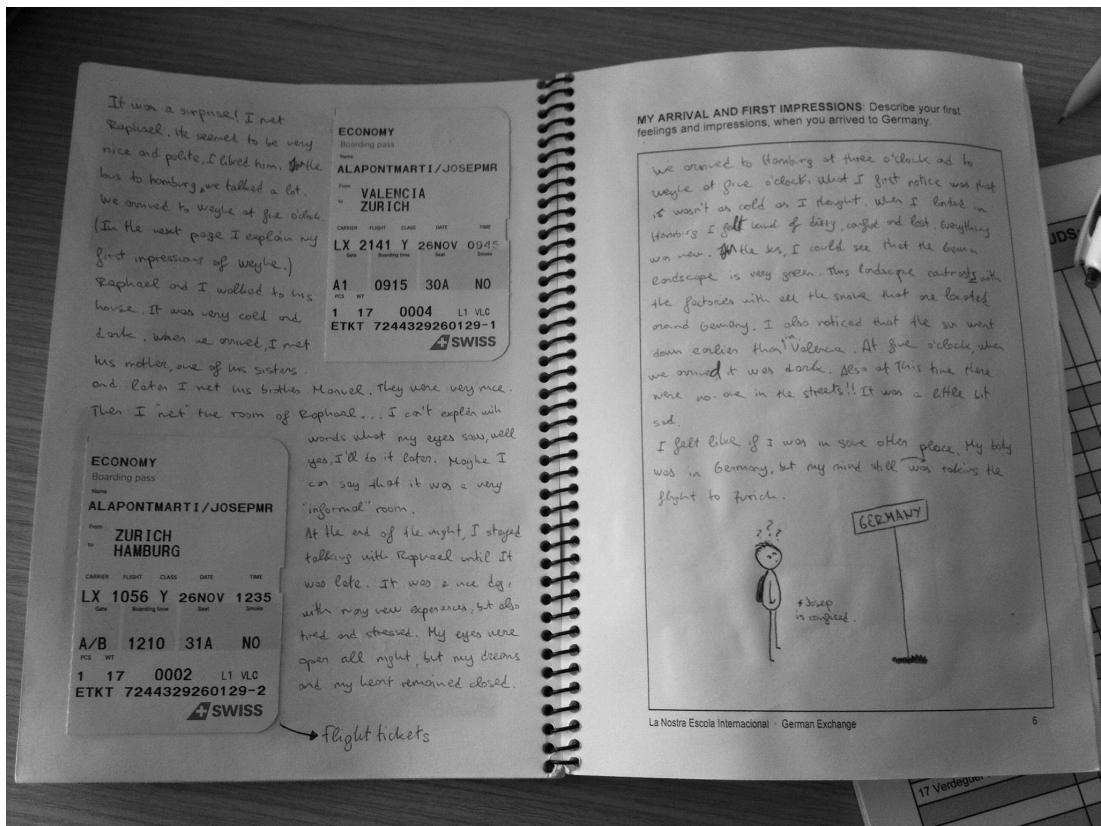 It was a surprise! I met
Raphael. He seemed to be very
nice and polite, I liked him. In the
bus to homburg, we talked a lot.
We arrived to Weyhe at five o'clock
(In the next page I explain my
first inpressions of weyhe.)
Raphael and I walked to his
house. It was very cold and
dark. When we arrived, I met
his mother, one of his sisters
and later I met his brother Manuel. They were very nice.
Then I "met" the room of Raphael... I can't explain with
words what my eyes saw, well
yes, I'll do it later. Maybe I
can say that it was a very
"informal" room.
At the end of the night, I stayed
talking with Raphael until It
was late. It was a nice day,
with many new experiences, but also
tired and stressed. My eyes were
open all night, but my dreams
and my heart remained closed.
ECONOMY
Boarding pass
Name
ALAPONTMARTI/JOSEPMR
From VALENCIA
to ZURICH
CARRIER FLIGHT CLASS DATE TIME
LX 2141 Y 26NOV 0945
Gate Boarding time Seat Smoke
A1 0915 30A NO
PCS WT
1 17 0004 L1 VLC
ETKT 7244329260129-1
SWISS
ECONOMY
Boarding pass
Name
ALAPONTMARTI/JOSEPMR
From ZURICH
to HAMBURG
CARRIER FLIGHT CLASS DATE TIME
LX 1056 Y 26NOV 1235
Gate Boarding time Seat Smoke
A/B 1210 31A NO
PCS WT
1 17 0002 L1 VLC
ETKT 7244329260129-2
SWISS
flight tickets
MY ARRIVAL AND FIRST IMPRESSIONS: Describe your first
feelings and impressions, when you arrived to Germany.
We arrived to Hamburg at three o'clock ad to
weyhe at five o'clock. What I first notice was that
it wasn't as cold as I thought. When I landed in
Hamburg I felt kind of dizzy, confus and lost. Everything
was new. In the bus, I could see that the German
landscape is very green. This landscape contrasts with
the factories with all the smoke that are located
around Germany. I also noticed that the sun went
down earlier than in Valencia. At five o'clock, when
we arrived it was dark. Also at This time there
were no one in the streets!! It was a little bit
sad.
I felt like if I was in some other place. My body
was in Germany, but my mind still was taking the
flight to Zurich.
? ? ?
GERMANY
* Josep
is confused.
La Nostra Escola Internacional · German Exchange
6
17 Verdeguer